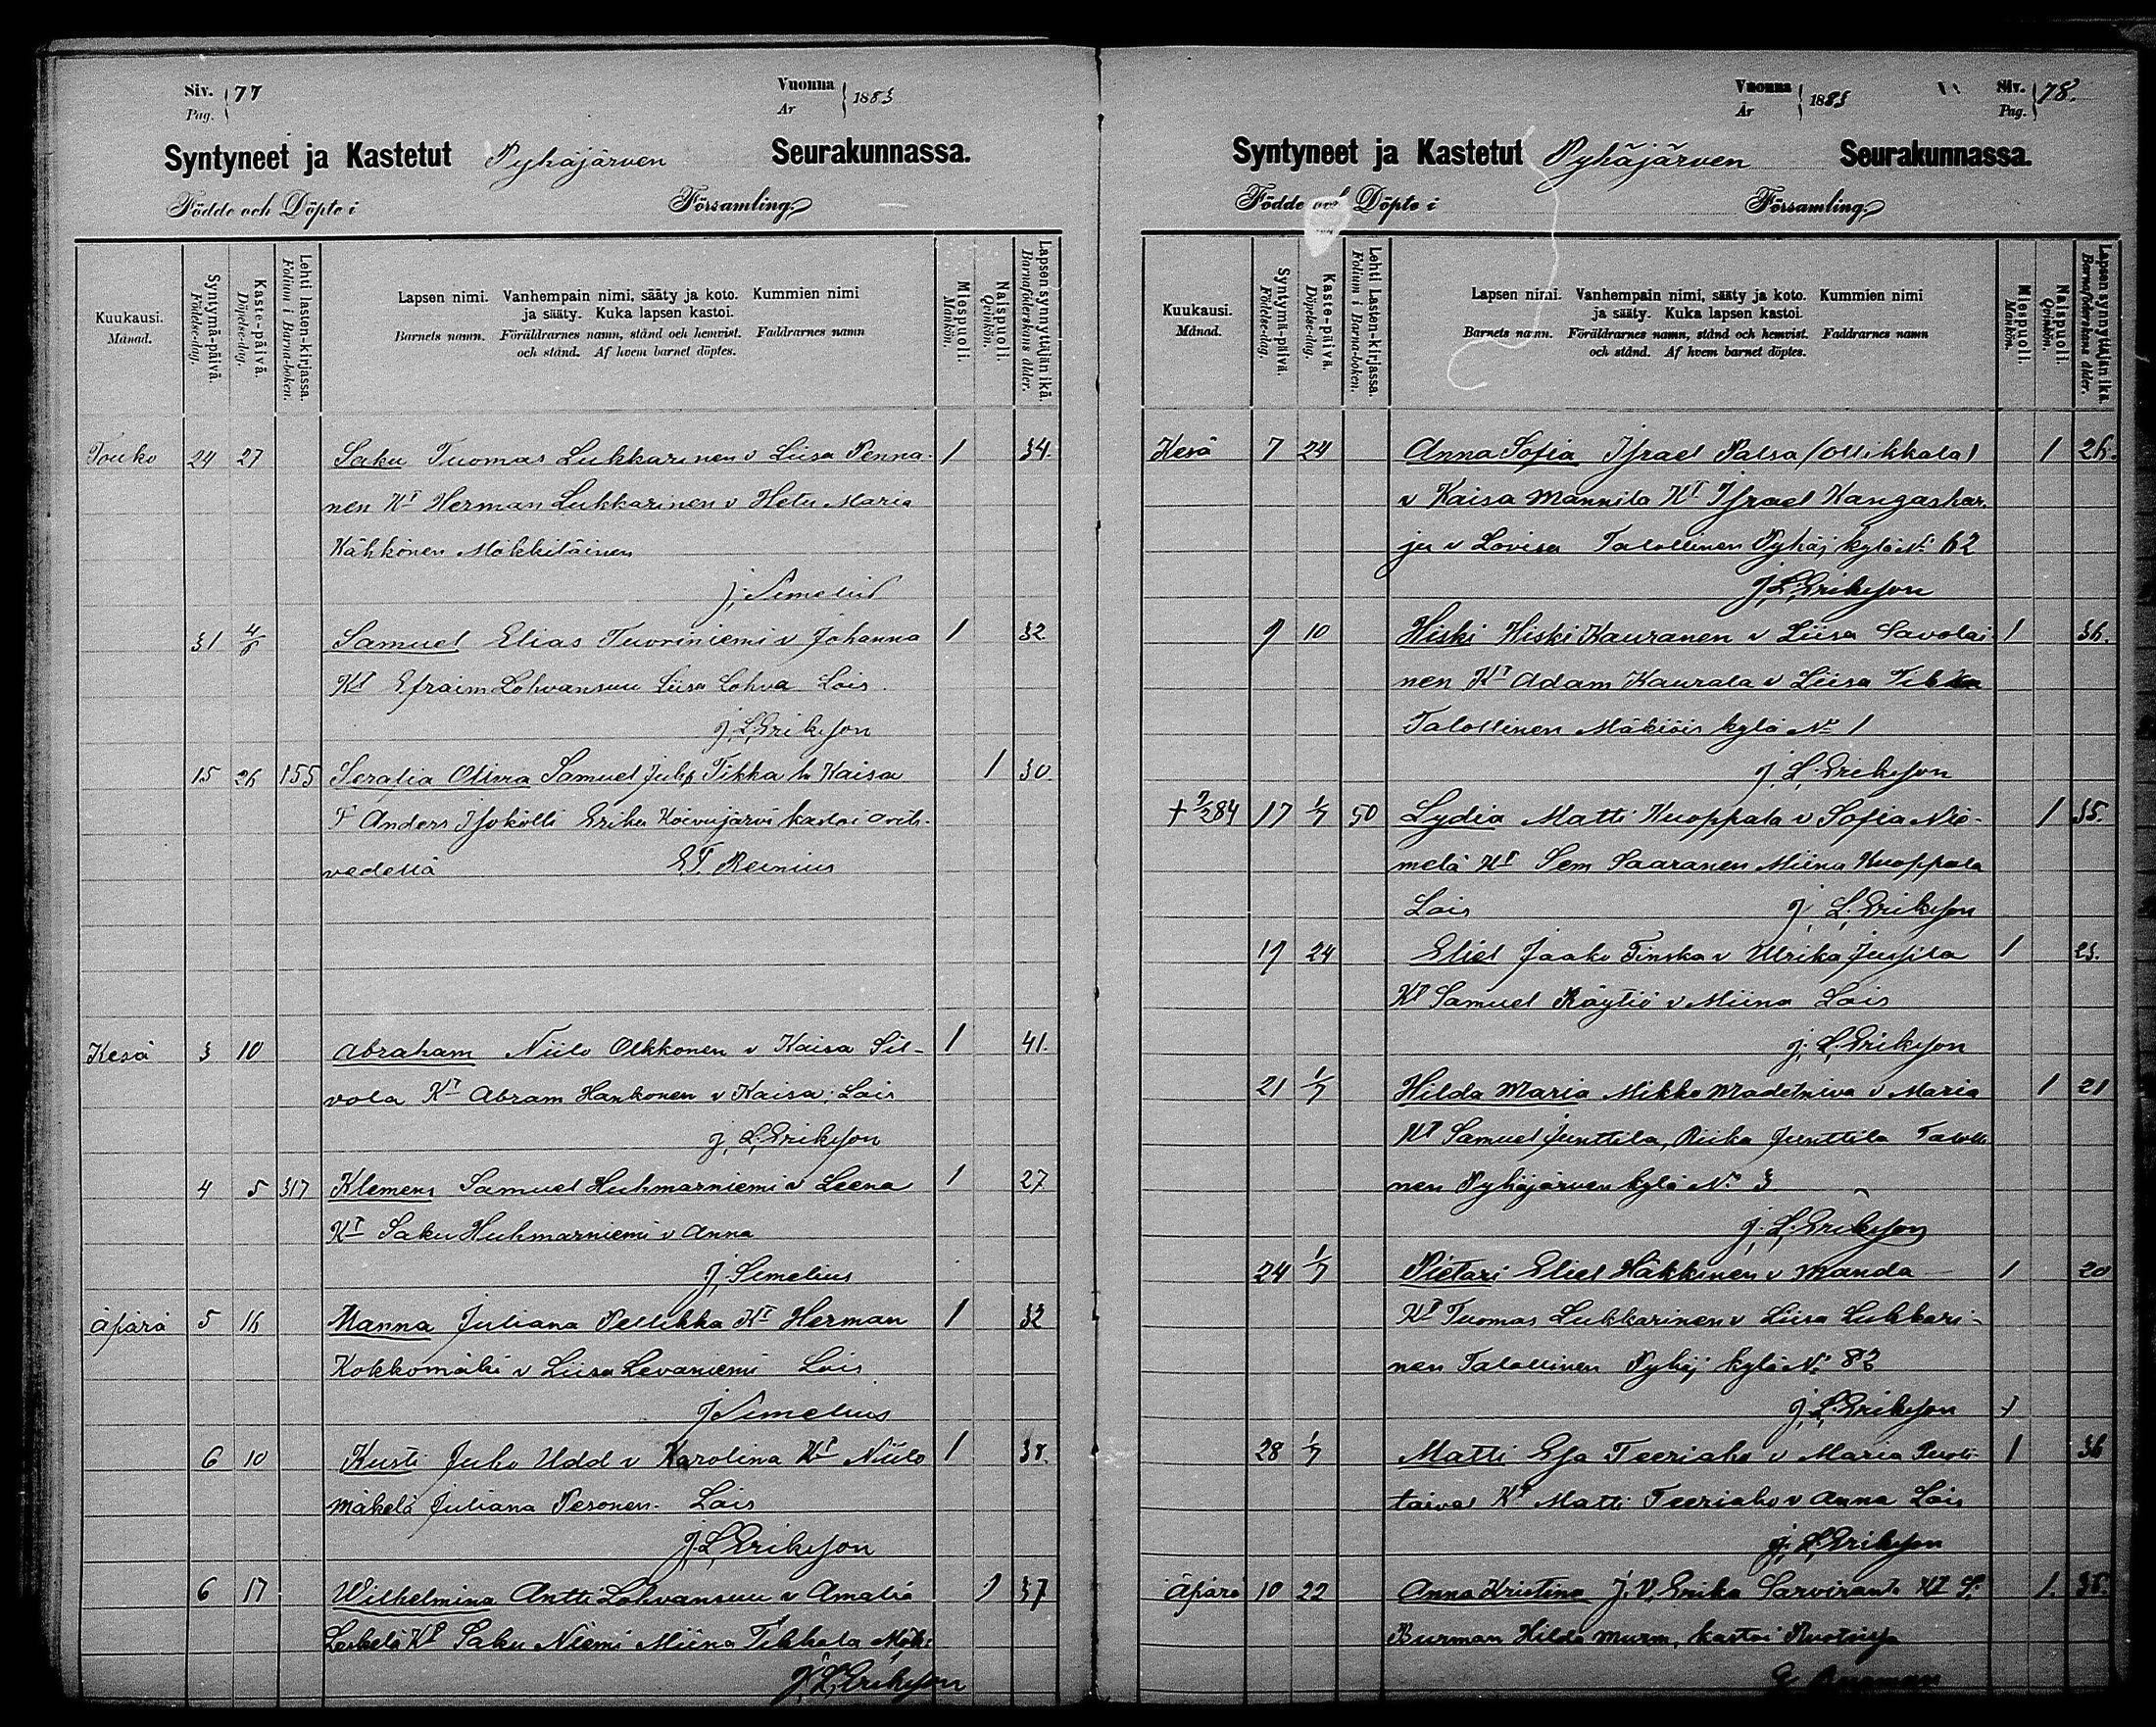 Siv. Pag. 77
Vuonna År 1883
Syntyneet ja Kastetut Pyhäjärven Seurakunnassa.
Födde och Döpte i Församling
Kuukausi. Månad.
Syntymä-päivä. Födelse-dag.
Kaste-päivä. Döpelse-dag.
Lehti lasten-kirjassa. Folium i Barna-boken.
Lapsen nimi. Vanhempain nimi, sääty ja koto. Kummien nimi
ja sääty. Kuka lapsen kastoi.
Barnets namn. Föräldrarnes namn, stånd och hemvist. Faddrarnes namn
och stånd. Af hvem barnet döptes.
Miespuoli. Mankön.
Naispuoli. Qvinkön.
Lapsensynnyttäjän ikä. Barnaföderskans ålder.
Touko 24 27 Saku Tuomas Lukkarinen v Liisa Penna- 1 34.
nen Kt Herman Lukkarinen v Hetu Maria
Kähkönen Mökkiläinen
J. Simelius
31 4/6 Samuel Elias Tuoriniemi v Johanna 1 32
Kt Efraim Lohvansuu Liisa Lohva Lois
J. L. Erikson
15 26 155 Serafia Olivia Samuel Juhp Tikka h Kaisa 1 30.
F Anders Isokölli Erika Koivujärvi kastoi
vedellä E. F. Reinius
Kesä 3 10 Abraham Niilo Olkkonen v Kaisa Sil- 1 41.
vola Kt Abram Hankonen v Kaisa. Lois
J. L. Erikson
4 5 317 Klemens Samuel Huhmarniemi v Leena 1 27
Kt Saku Huhmarniemi v Anna
J. Simelius
Äpärä 5 16 Manna Juliana Pellikka Kt Herman 1 32
Kokkomäki v Liisa Levaniemi Lois
J Simelius
6 10 Kusti Juho Udd v Karolina Kt Niilo 1 38.
Mäkelä Juliana Pesonen. Lois
J. L. Erikson
6 17 Wilhelmina Antti Lohvansuu v Amalia 1 37
Leskelä Kt Saku Niemi Miina Tikkala Mök:
J. L. Erikson
Vuonna År 1883
Siv. Pag. 78.
Syntyneet ja Kastetut Pyhäjärven Seurakunnassa.
Födde och Döpte i Församling
Kuukausi. Månad.
Syntymä-päivä. Födelse-dag.
Kaste-päivä. Döpelse-dag.
Lehti Lasten-kirjassa. Folium i Barna-boken.
Lapsen nimi. Vanhempain nimi, sääty ja koto. Kummien nimi
ja sääty. Kuka lapsen kastoi.
Barnets namn. Föräldrarnes namn, stånd och hemvist. Faddrarnes namn
och stånd. Af hvem barnet döptes.
Miespuoli. Mankön.
Naispuoli. Qvinkön.
Lapsensynnyttäjän ikä. Barnaföderskans ålder.
Kesä 7 24 Anna Sofia Israel Palsa (Ollikkala) 1 26.
v Kaisa Mannila Kt Israel Kangashar-
ju v Lovisa Talollinen Pyhäj kylä No 62
J. L. Erikson
9 10 Hiski Hiski Kauranen v Liisa Savolai- 1 36.
nen Kt Adam Kaurala v Liisa Tikka
Talollinen Mäkiöis kylä No 1
J. L. Erikson
+ 7/2 84 17 1/7 50 Lydia Matti Kuoppala v Sofia Nie- 1 35.
melä Kt Sem Saaranen Miina Kuoppala
Lois J. L. Erikson
19 24 Eliel Jaako Tinska v Ulrika Jussila 1 23.
Kt Samuel Räytiö v Miina Lois
J. L. Erikson
21 1/7 Hilda Maria Mikko Madetniva v Maria 1 21
Kt Samuel Junttila, Riika Junttila Talolli
nen Pyhäjärven kylä No 3
J. L. Erikson
24 1/7 Pietari Eliel Häkkinen v Manda 1 20
Kt Tuomas Lukkarinen v Liisa Lukkari-
nen Talollinen Pyhäj kylä No 82
J. L. Erikson
28 1/7 Matti Esa Teeriaho v Maria Puoli- 1 36
taival Kt Matti Teeriaho v Anna Lois
J. L. Erikson
Äpärä 10 22 Anna Kristina J. V. Erika Sarviranta Kt S. 1. 38.
Burman Hilda Murm, kastoi Ruotsissa